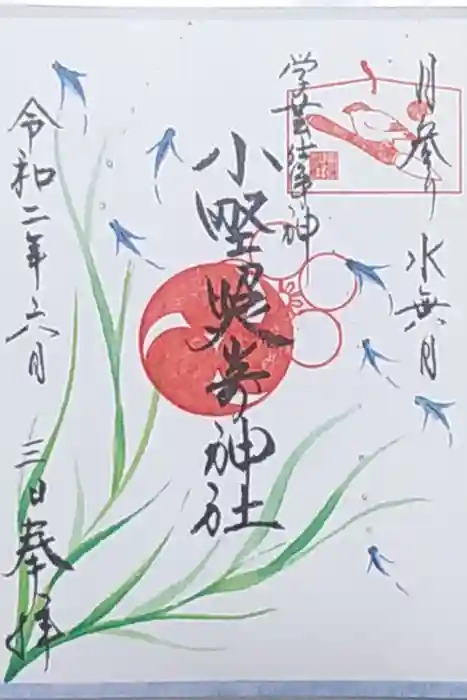 月参り 水無月
学芸仕事神
小野照崎神社
令和二年六月 三日奉拝